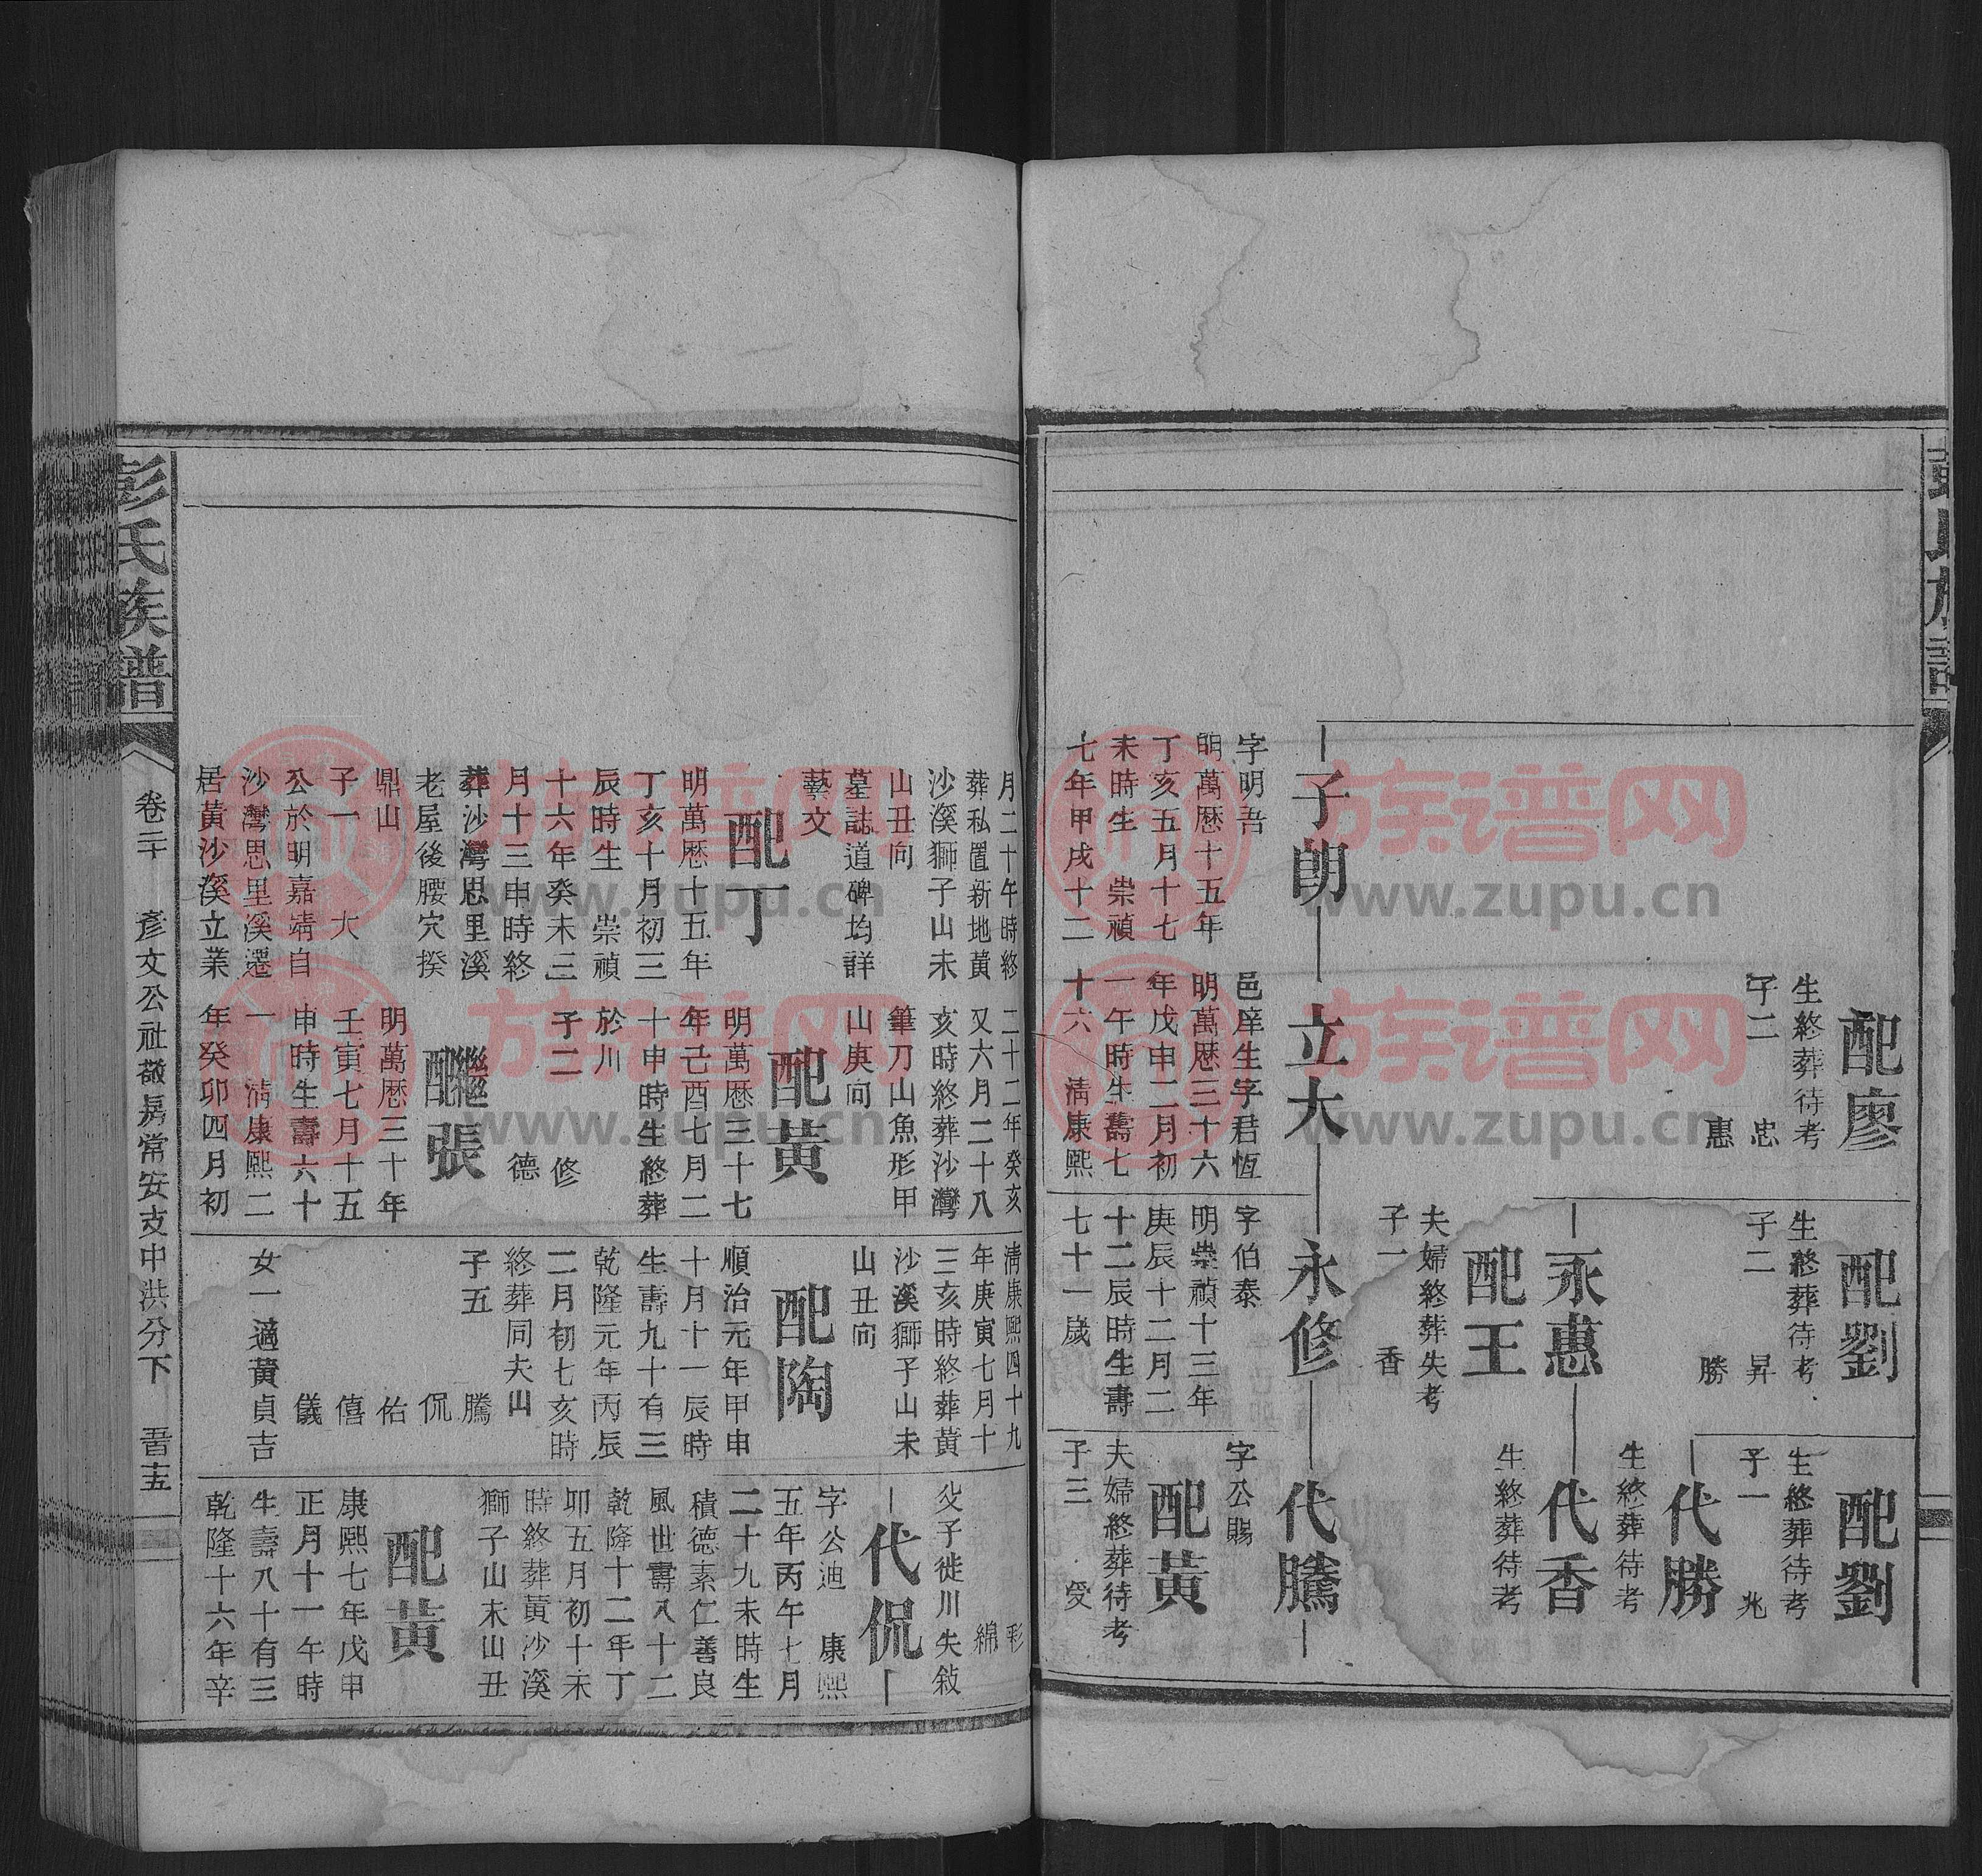 彭氏族譜
配廖
生終葬待考
子二
忠
惠
子朗
字明吾
明萬歷十五年
丁亥五月十七
未時生 崇禎
七年甲戌十二
立大
邑庠生字君恆
明萬歷三十六
年戊申二月初
一午時生壽七
十六 清康熙
配劉
生終葬待考
子二
昇
勝
永惠
配王
夫婦終葬失考
子一
香
永修
字伯泰
明崇禎十三年
庚辰十二月二
十二辰時生壽
七十一歲
配劉
生終葬待考
子一
兆
代勝
生終葬待考
代香
生終葬待考
代騰
字公賜
配黃
夫婦終葬待考
子三
受
月二十午時終
葬私置新地黃
沙溪獅子山未
山丑向
墓誌道碑均詳
藝文
配丁
明萬歷十五年
丁亥十月初三
辰時生 崇禎
十六年癸未三
月十三申時終
葬沙灣思里溪
老屋後腰穴揆
鼎山
子一 大
公於明嘉靖自
沙灣思里溪遷
居黃沙溪立業
二十二年癸亥
又六月二十八
亥時終葬沙灣
筆刀山魚形甲
山庚向
配黃
明萬歷三十七
年己酉七月二
十申時生終葬
於川
子二
修
德
繼配張
明萬歷三十年
壬寅七月十五
申時生壽六十
一 清康熙二
年癸卯四月初
清康熙四十九
年庚寅七月十
三亥時終葬黃
沙溪獅子山未
山丑向
配陶
順治元年甲申
十月十一辰時
生壽九十有三
乾隆元年丙辰
二月初七亥時
終葬同夫山
子五
騰
侃
佑
僖
儀
女一適黃貞吉
彩
綿
父子徙川失敍
代侃
字公迪 康熙
五年丙午七月
二十九未時生
積德素仁善良
風世壽八十二
乾隆十二年丁
卯五月初十未
時終葬黃沙溪
獅子山未山丑
配黃
康熙七年戊申
正月十一午時
生壽八十有三
乾隆十六年辛
彭氏族譜
卷二十
彥文公社敬房常安支中洪分下
族谱网
www.zupu.cn
族谱网
www.zupu.cn
族谱网
www.zupu.cn
族谱网
www.zupu.cn